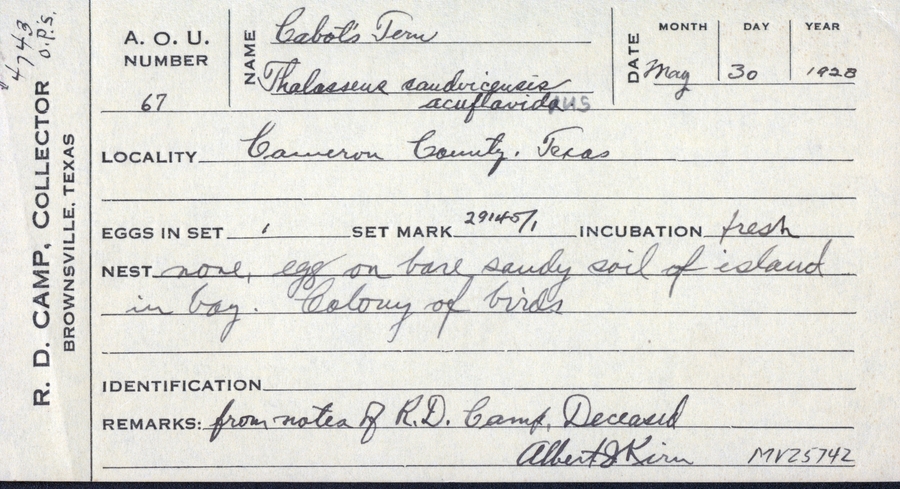 4743
O.P.S.
R. D. CAMP, COLLECTOR
BROWNSVILLE, TEXAS
A. O. U.
NUMBER
67
NAME Cabot's Tern
Thalasseus sandvicensis
acuflavidaus
DATE
MONTH DAY YEAR
May 30 1928
LOCALITY Cameron County, Texas
EGGS IN SET 1 SET MARK 29145/1 INCUBATION fresh
NEST none, egg on bare sandy soil of island
in bay. Colony of birds
IDENTIFICATION
REMARKS: from notes of R.D. Camp, Deceased
Albert J Kirn MVZ5742